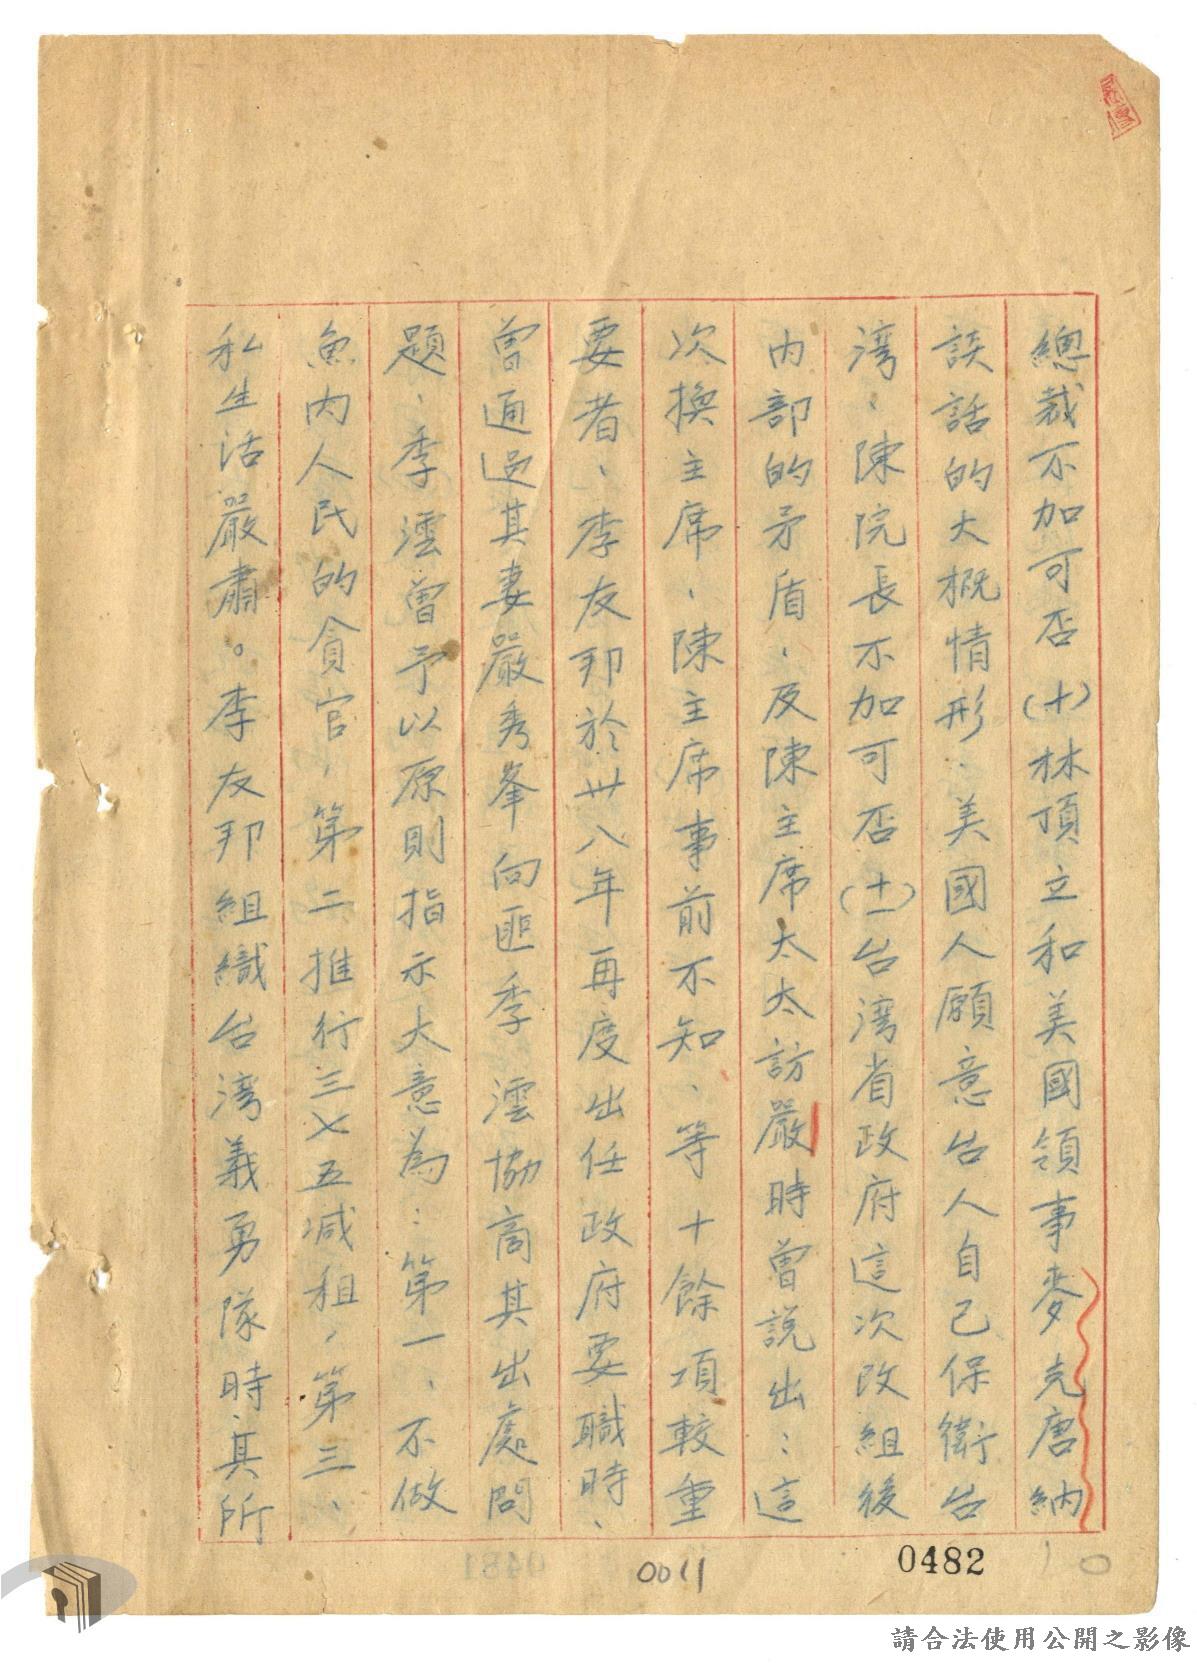 總裁不加可否(十)林頂立和美國領事麥克唐納
談話的大概情形、美國人願意台人自己保衛台
湾、陳院長不加可否(十一)台湾省政府這次改組後
內部的矛盾、及陳主席太太訪嚴時曾說出：這
次換主席、陳主席事前不知、等十餘項較重
要者、李友邦於卅八年再度出任政府要職時、
曾通过其妻嚴秀峯向匪季澐協商其出處問
題、季澐曾予以原則指示大意為：第一、不做
魚肉人民的貪官，第二推行三七五減租，第三、
私生活嚴肅。李友邦組織台湾義勇隊時、其所
0482
0011
10
0481
請合法使用公開之影像